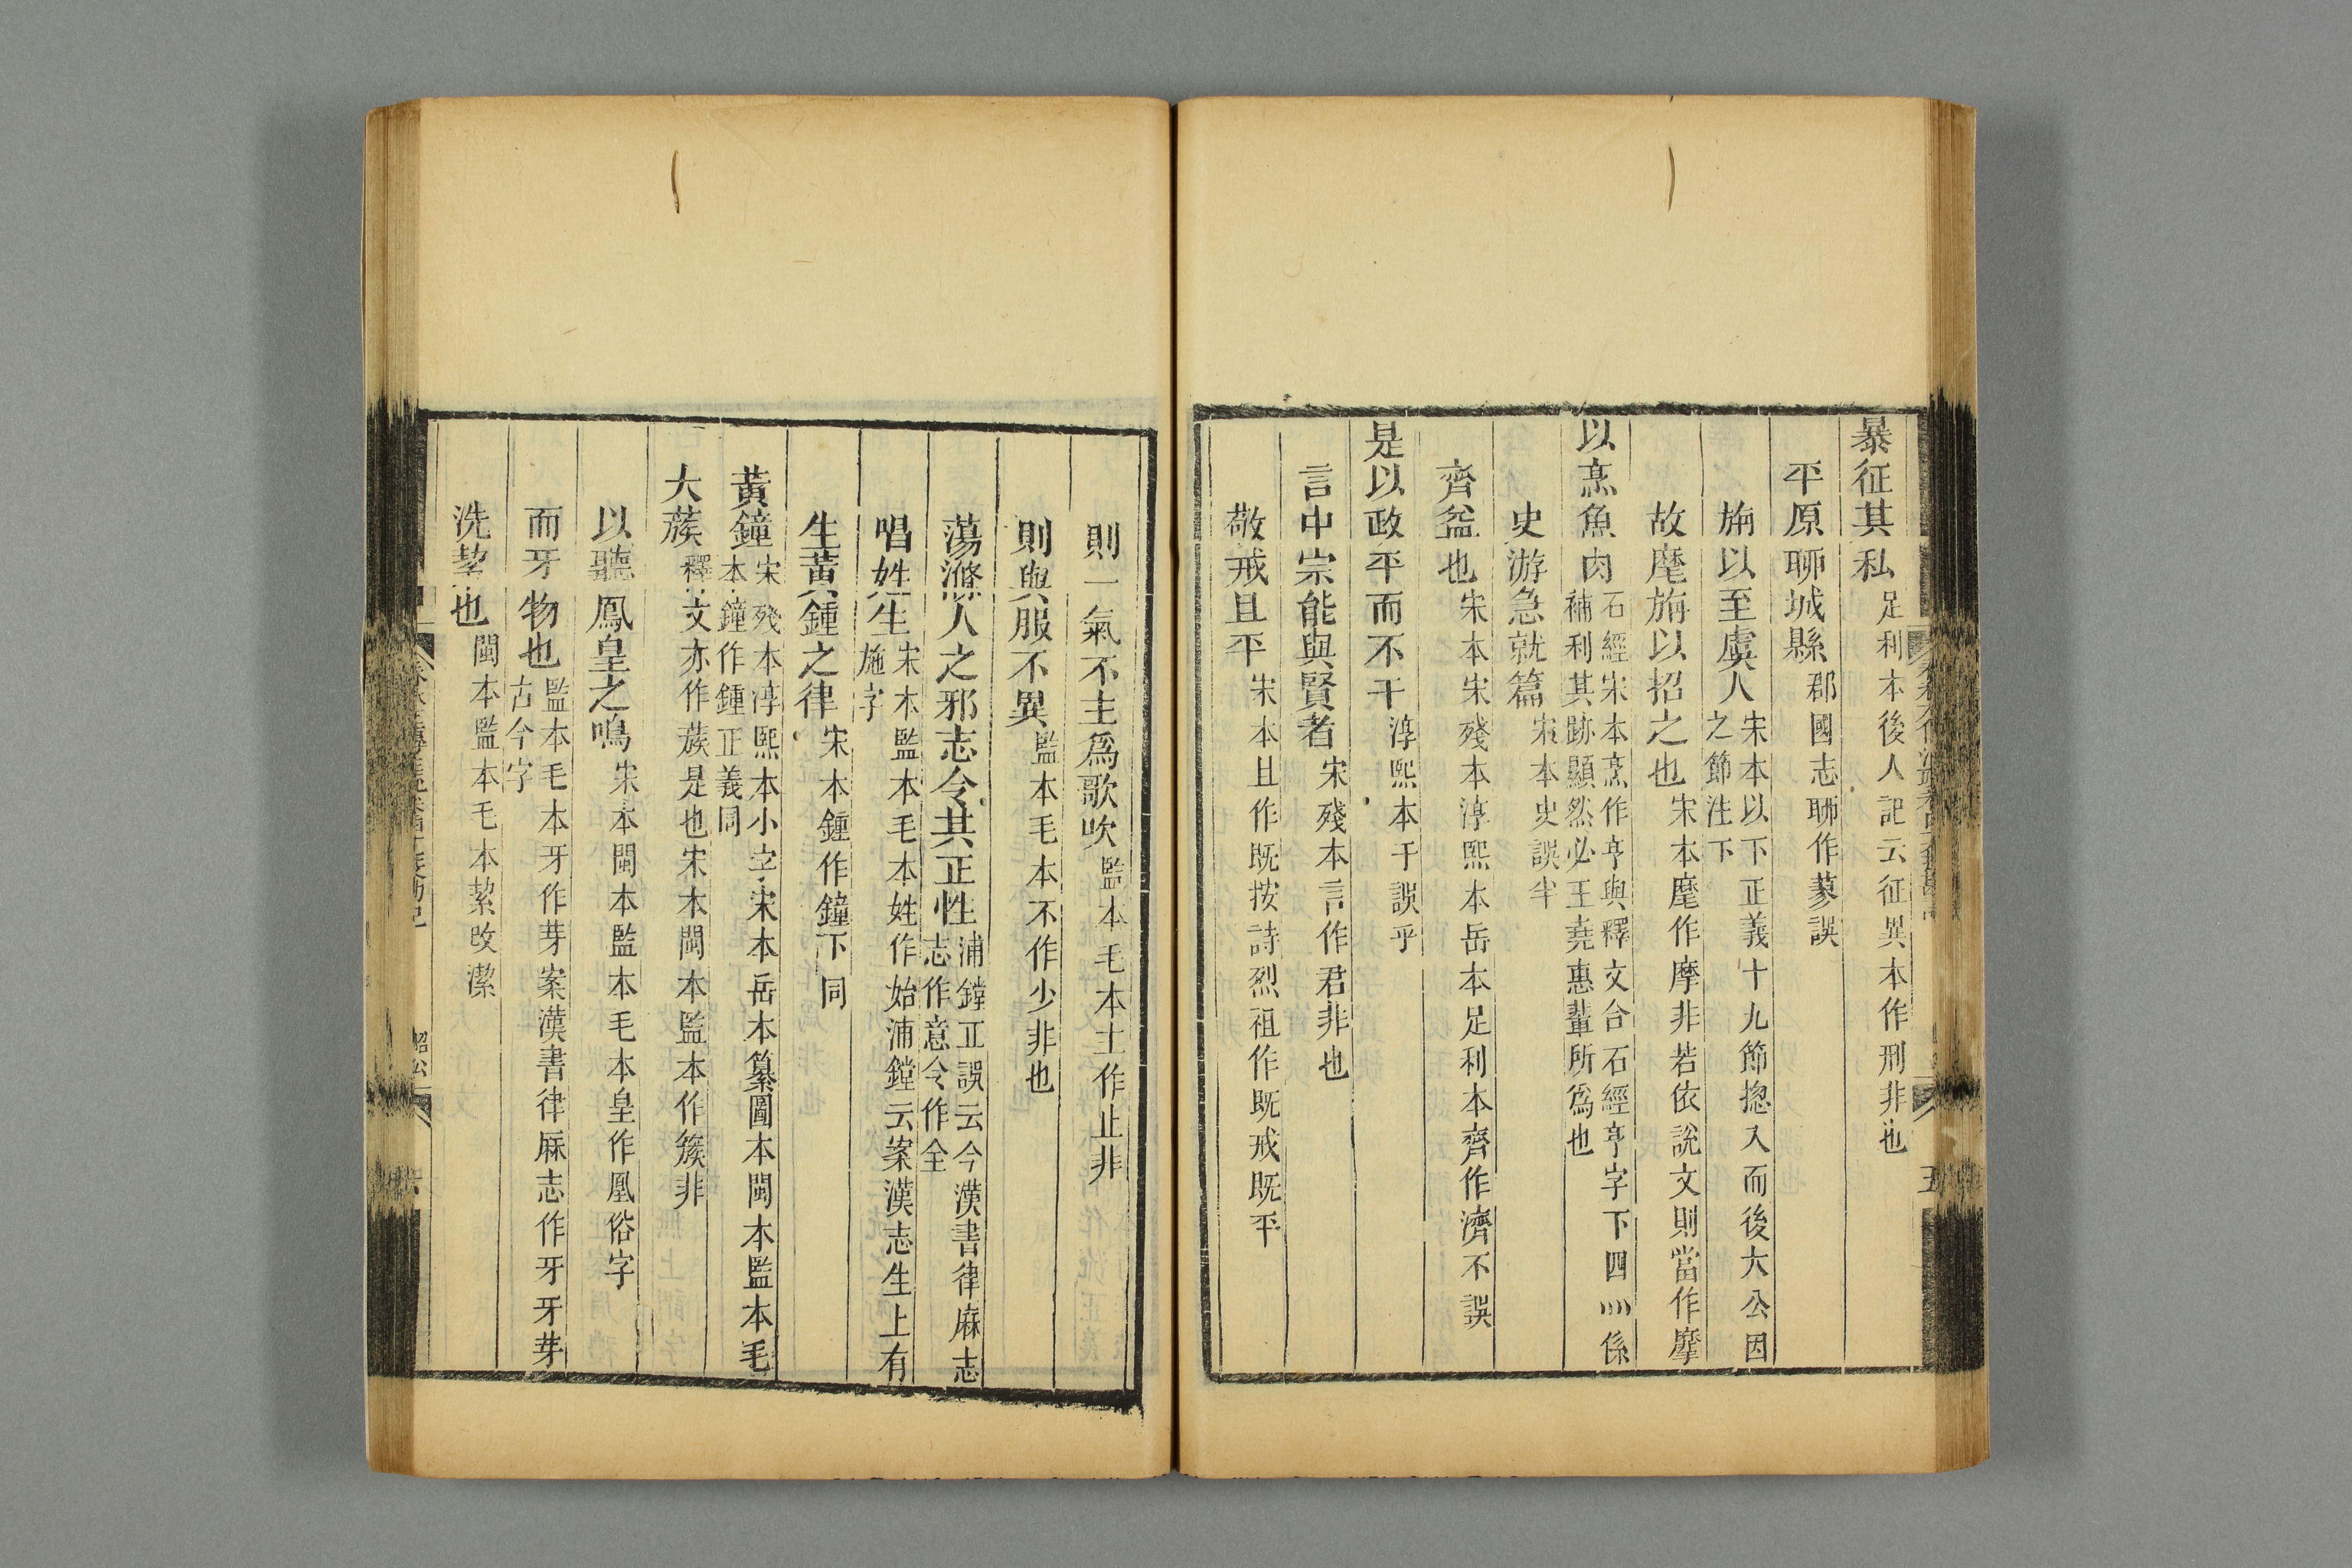 暴征其私足利本後人記云征異本作刑非也
平原聊城縣郡國志聊作蓼誤
旃以至虞人宋本以下正義十九節揔入而後大公因之節注下
故麾旃以招之也宋本麾作摩非若依說文則當作摩
以烹魚肉石經宋本烹作亨與釋文合石經亨字下四灬係補利其跡顯然必王堯惠輩所爲也
史游急就篇宋本史誤半
齊益也宋本宋殘本淳熙本岳本足利本齊作濟不誤
是以政平而不干淳熙本干誤乎
言中宗能與賢者宋殘本言作君非也
敬戒且平宋本且作既按詩烈祖作既戒既平
五
則一氣不主爲歌吹監本毛本主作止非
則與服不異監本毛本不作少非也
蕩滌人之邪志令其正性浦鏜正誤云今漢書律麻志志作意令作全
唱姓生宋本監本毛本姓作始浦鏜云案漢志生上有施字
生黃鍾之律宋本鍾作鐘下同
黃鐘宋殘本淳熙本小字宋本岳本纂圖本閩本監本毛本鐘作鍾正義同
大蔟釋文亦作蔟是也宋本閩本監本作簇非
以聽鳳皇之鳴宋本閩本監本毛本皇作凰俗字
而牙物也監本毛本牙作芽案漢書律麻志作牙牙芽古今字
洗絜也閩本監本毛本絜改潔